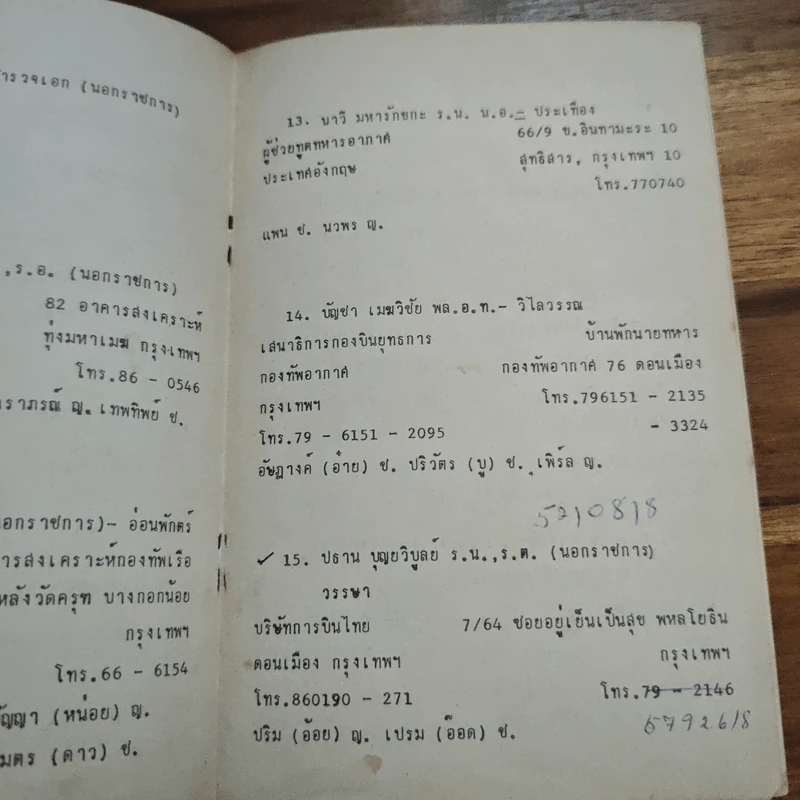 ารวจเอก (นอกราชการ)
,ร.อ. (นอกราชการ)
82 อาคารสงเคราะห์
ทุ่งมหาเมฆ กรุงเทพฯ
โทร.86 - 0546
ราภรณ์ ญ. เทพทิพย์ ช.
นอกราชการ)- อ่อนพักตร์
ารสงเคราะห์กองทัพเรือ
หลังวัดครุฑ บางกอกน้อย
กรุงเทพฯ
โทร.66 - 6154
ัญญา (หน่อย) ญ.
มตร (ดาว) ช.
13. นาวี มหารักขกะ ร.น. น.อ.- ประเทือง
ผู้ช่วยทูตทหารอากาศ 66/9 ซ.อินทามะระ 10
ประเทศอังกฤษ สุทธิสาร, กรุงเทพฯ 10
โทร.770740
แพน ช. นวพร ญ.
14. บัญชา เมฆวิชัย พล.อ.ท.- วิไลวรรณ
เสนาธิการกองบินยุทธการ บ้านพักนายทหาร
กองทัพอากาศ กองทัพอากาศ 76 ดอนเมือง
กรุงเทพฯ โทร.796151 - 2135
โทร.79 - 6151 - 2095 - 3324
อัษฎางค์ (อ๋าย) ช. ปริวัตร (บู) ช. เพิร์ล ญ.
5210818
✓ 15. ปธาน บุญยวิบูลย์ ร.น.,ร.ต. (นอกราชการ)
วรรษา
บริษัทการบินไทย 7/64 ซอยอยู่เย็นเป็นสุข พหลโยธิน
ดอนเมือง กรุงเทพฯ กรุงเทพฯ
โทร.860190 - 271 โทร.79 - 2146
ปริม (อ้อย) ญ. เปรม (อ๊อด) ช. 5792618